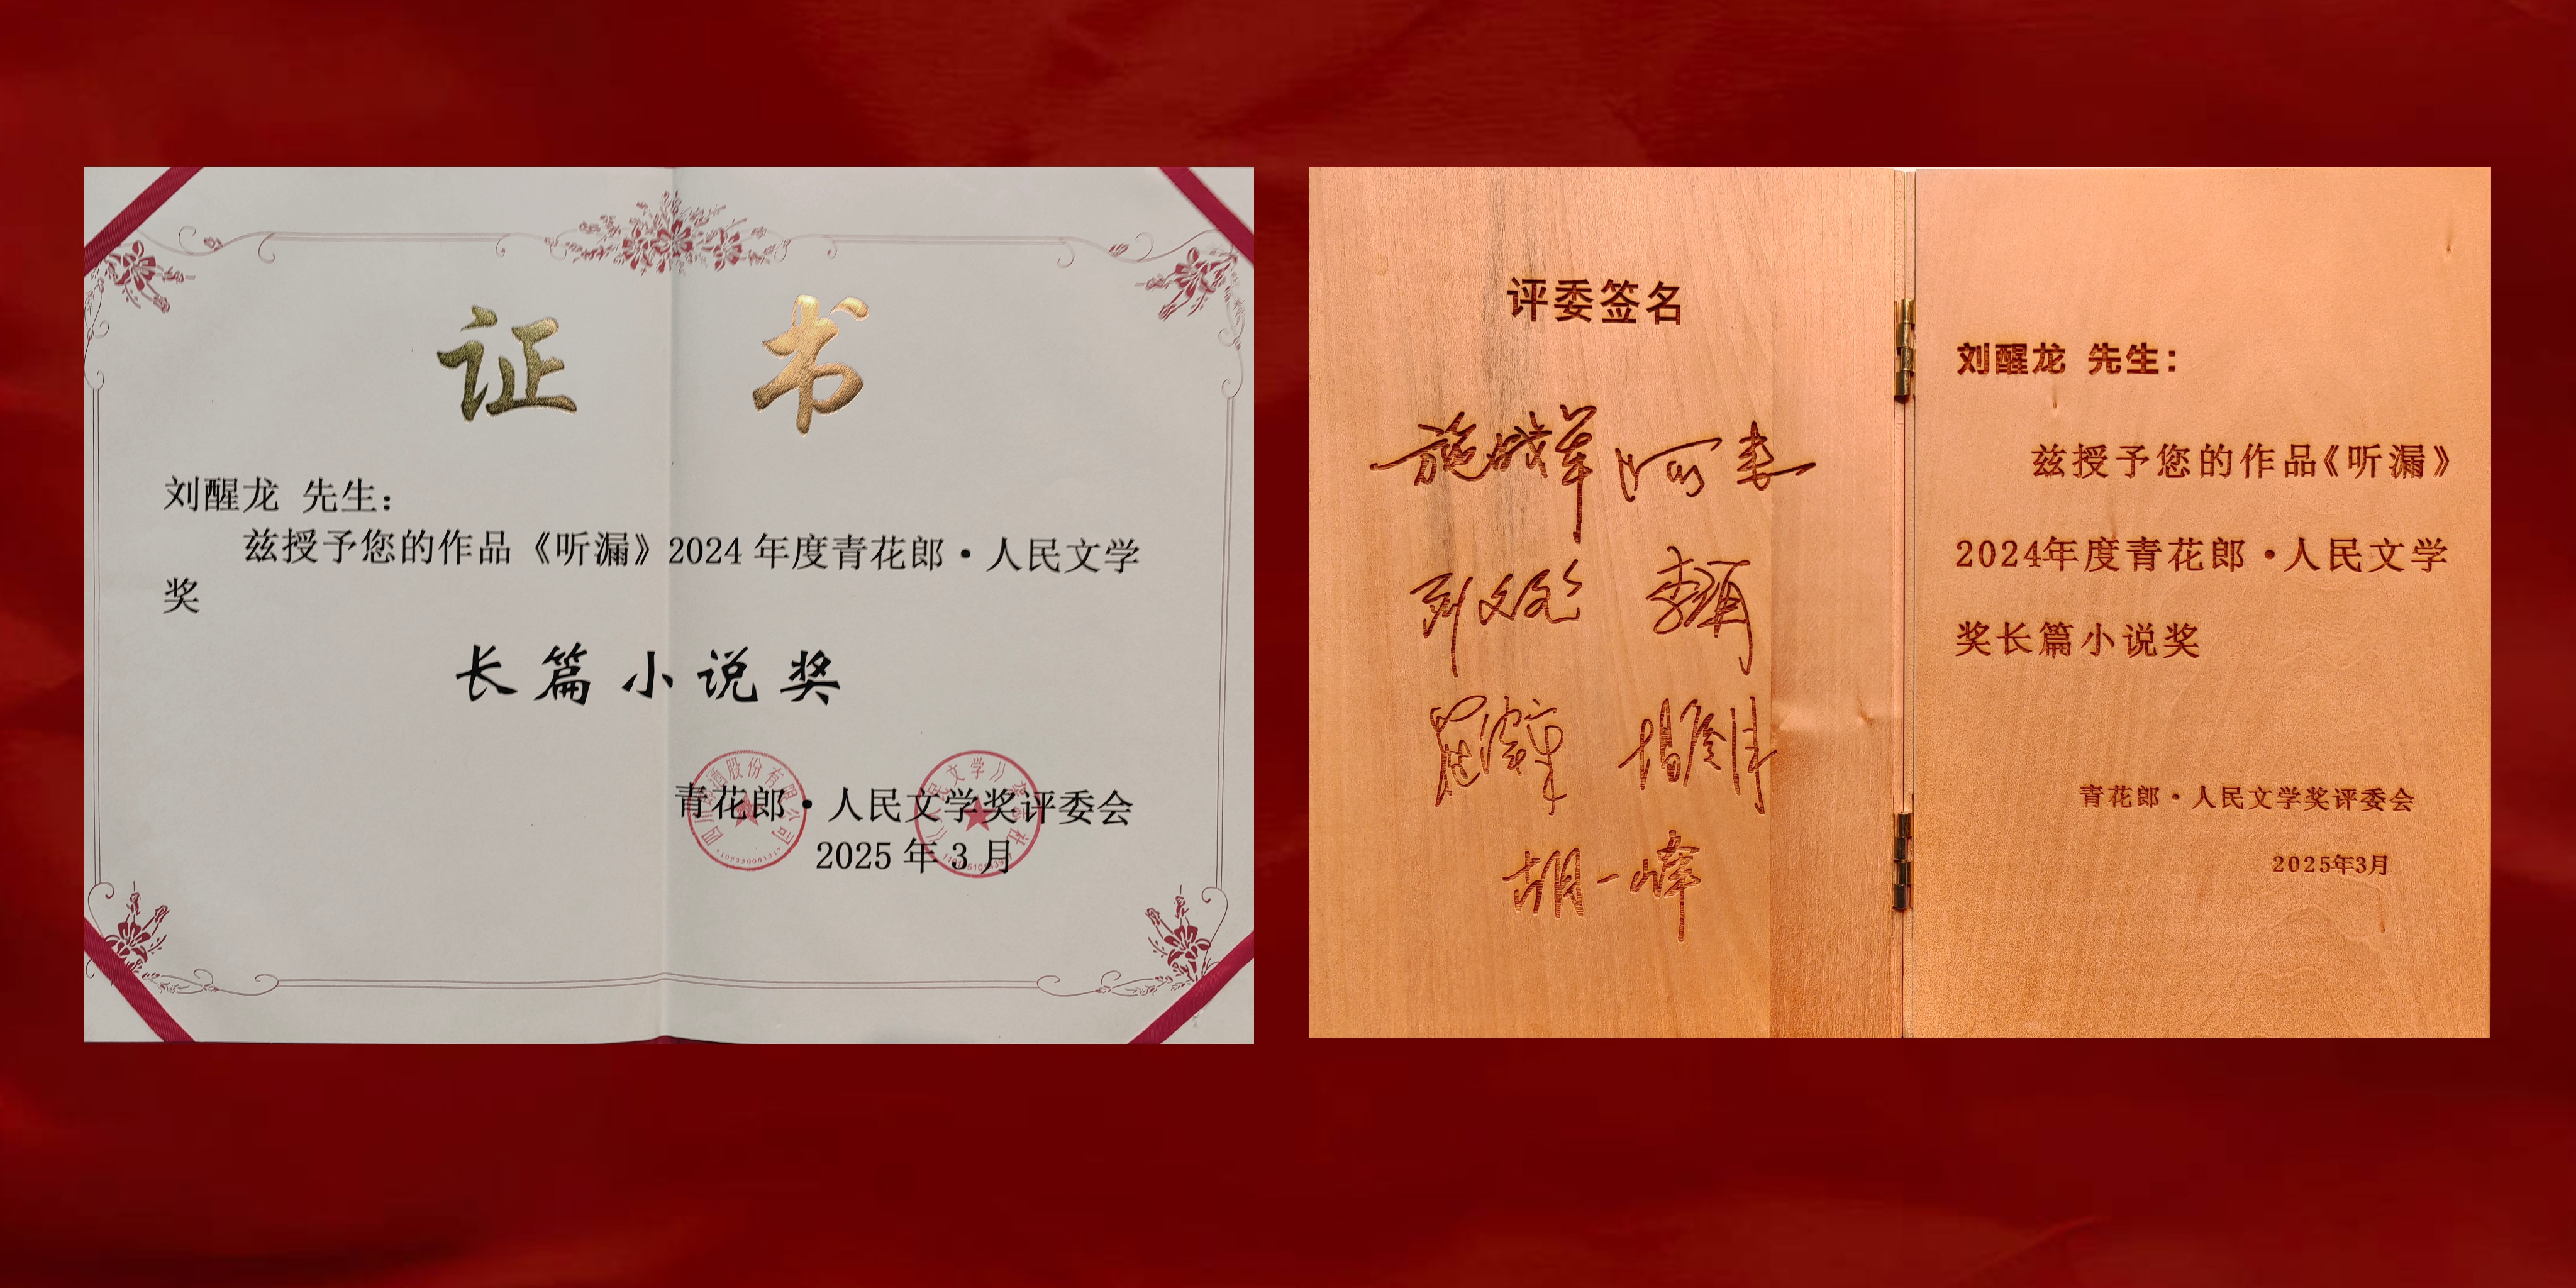 证 书
刘醒龙 先生：
兹授予您的作品《听漏》2024 年度青花郎·人民文学
奖
长篇小说奖
青花郎·人民文学奖评委会
2025 年 3 月
评委签名
施战军 阿来
胡一峰
刘醒龙 先生：
兹授予您的作品《听漏》
2024年度青花郎·人民文学
奖长篇小说奖
青花郎·人民文学奖评委会
2025年3月